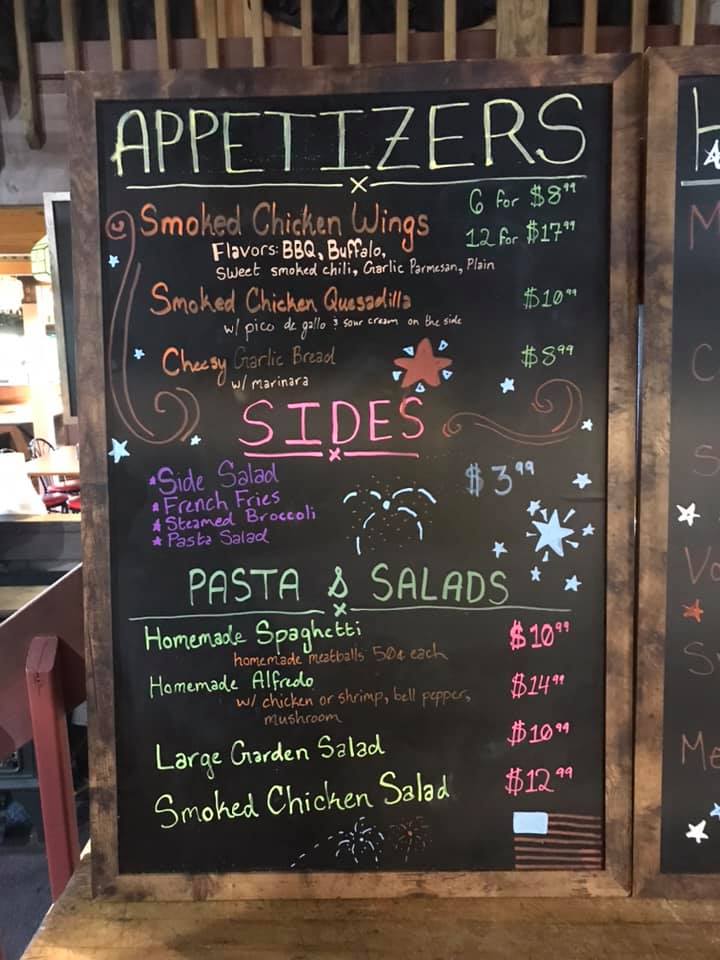 APPETIZERS
Smoked Chicken Wings 6 for $8.99
12 for $17.99
Flavors: BBQ, Buffalo,
Sweet smoked chili, Garlic Parmesan, Plain
Smoked Chicken Quesadilla $10.99
w/ pico de gallo & sour cream on the side
Cheesy Garlic Bread $8.99
w/ marinara
SIDES
Side Salad $3.99
French Fries
Steamed Broccoli
Pasta Salad
PASTA & SALADS
Homemade Spaghetti $10.99
homemade meatballs 50¢ each
Homemade Alfredo $14.99
w/ chicken or shrimp, bell pepper,
mushroom
Large Garden Salad $10.99
Smoked Chicken Salad $12.99